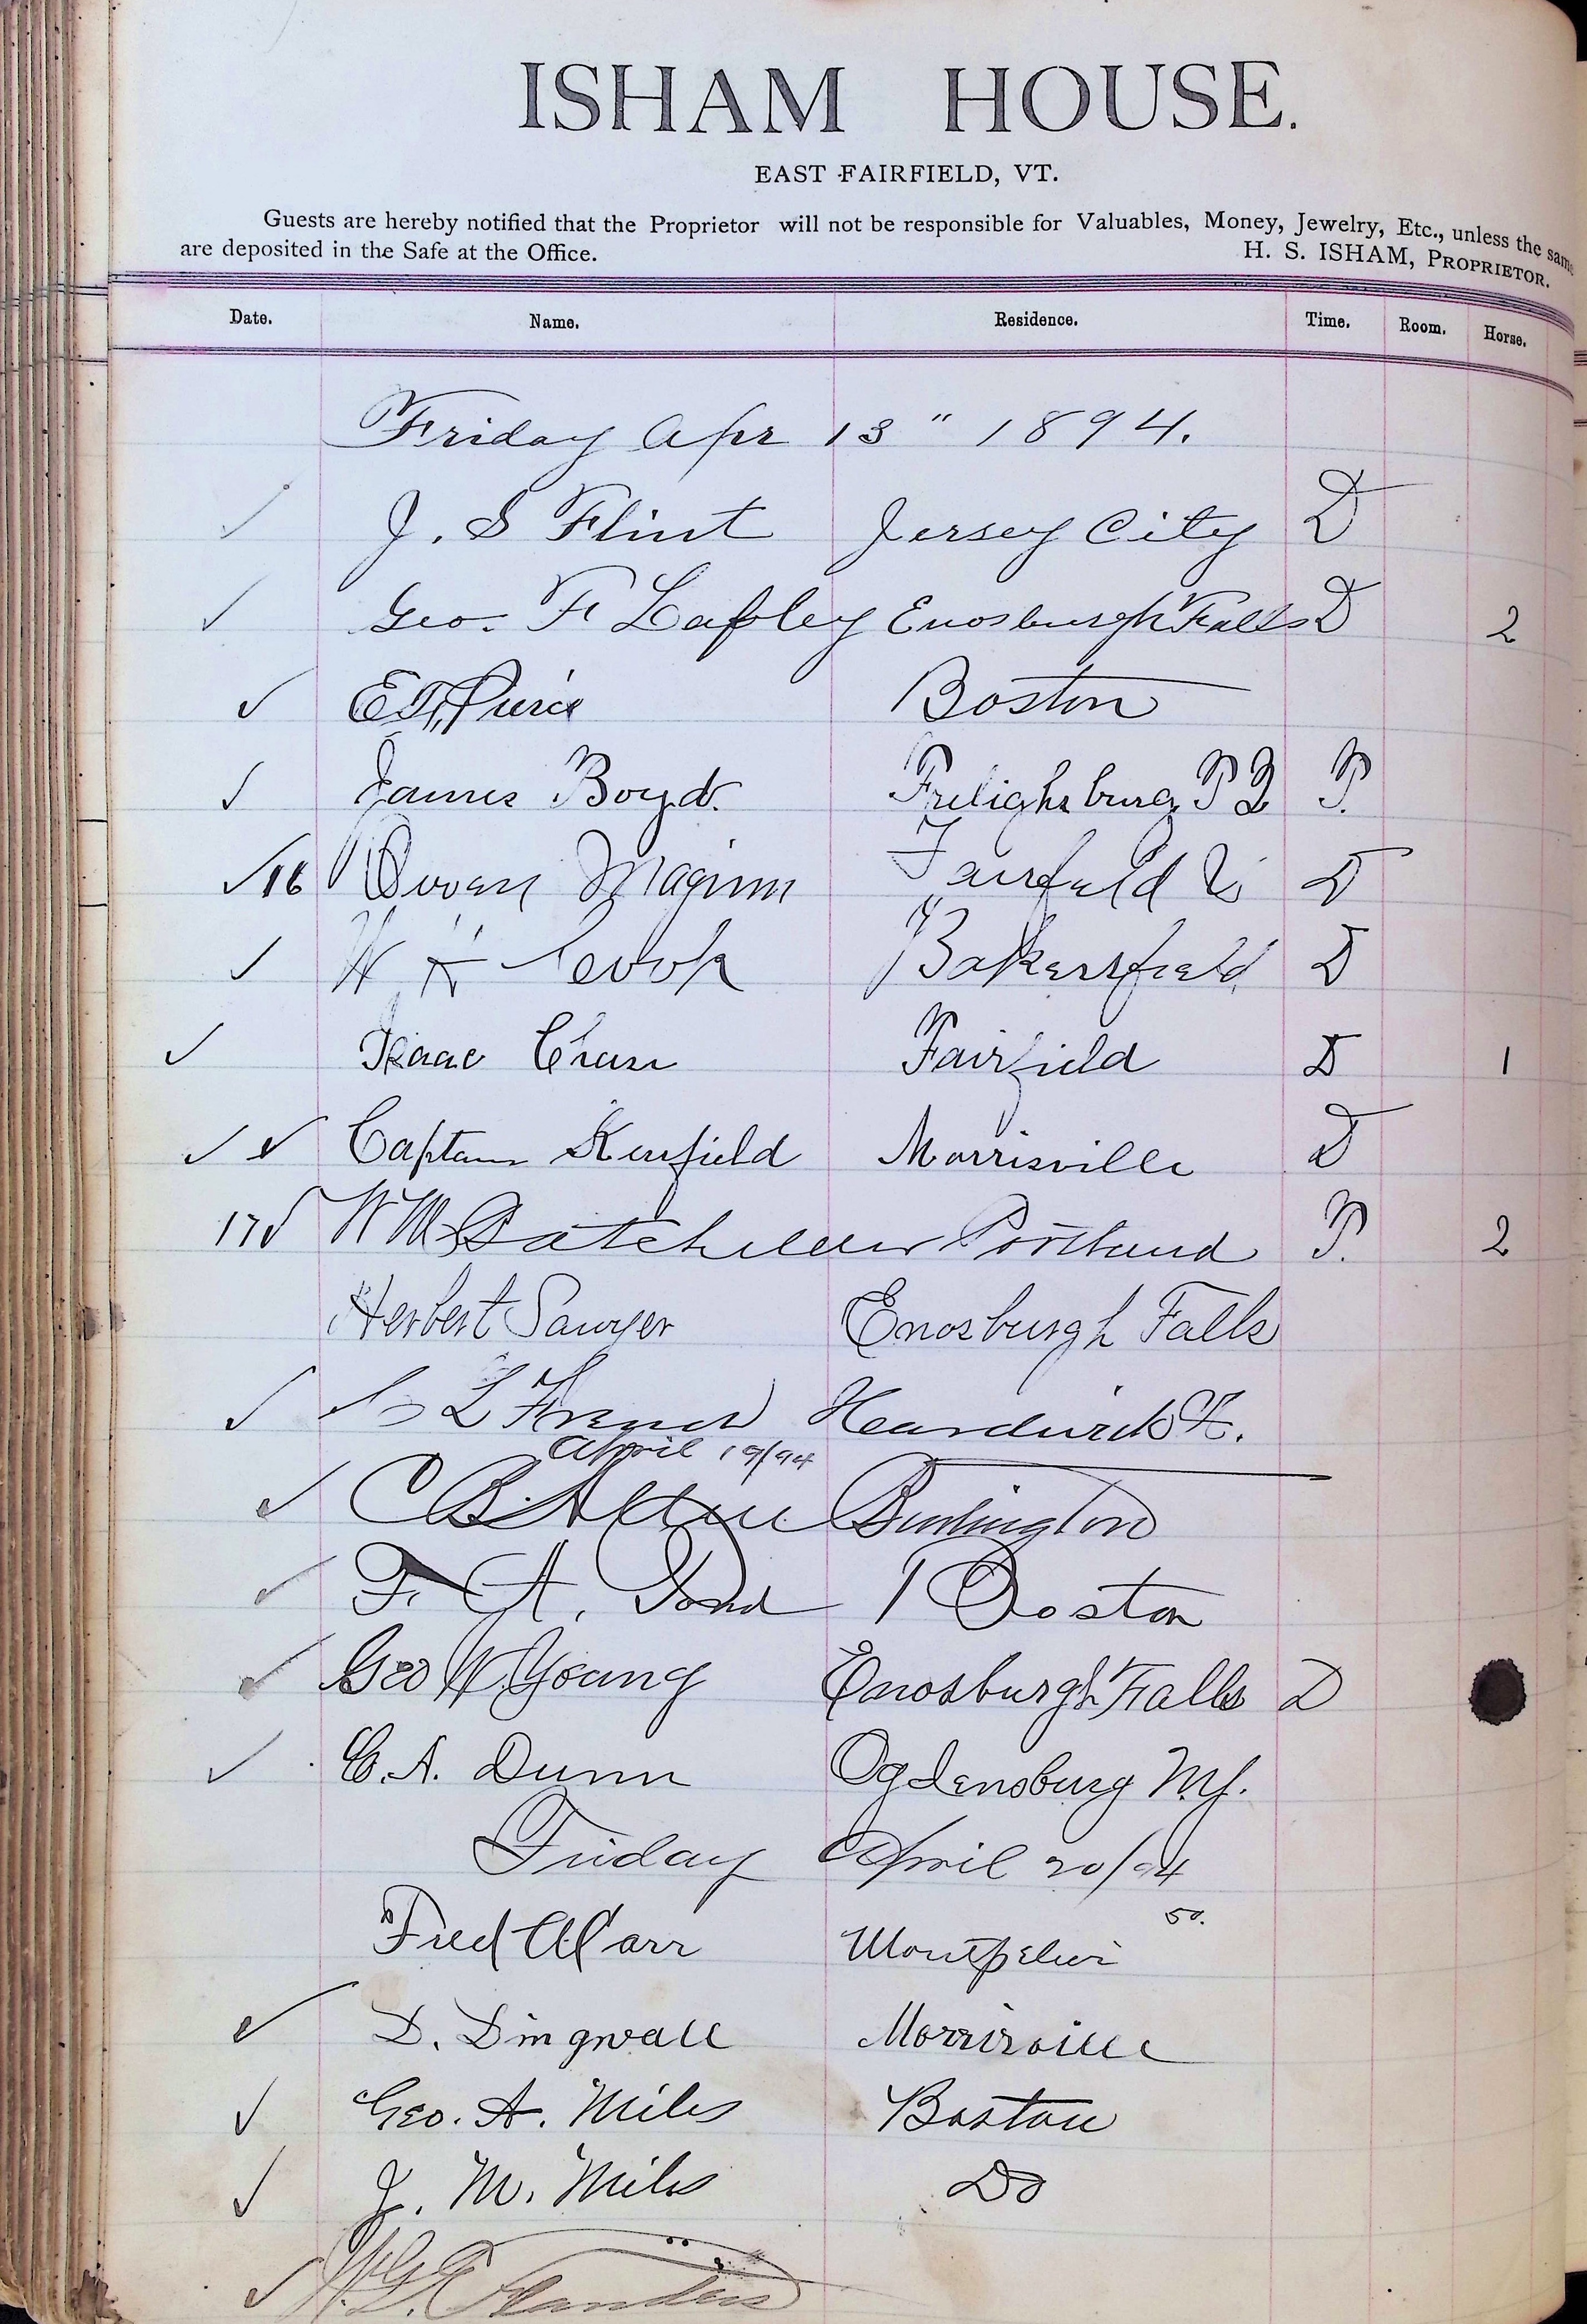 ISHAM HOUSE.
EAST FAIRFIELD, VT.
Guests are hereby notified that the Proprietor will not be responsible for Valuables, Money, Jewelry, Etc., unless the same
are deposited in the Safe at the Office. H. S. ISHAM, PROPRIETOR.
Date. Name. Residence. Time. Room. Horse.
Friday Apr 13 " 1894.
J. S Flint Jersey City D
Geo. F Lapley Enosburgh Falls D 2
Pierce Boston
James Boyd Frelighsburg P Q P.
16 Owen Maginn Fairfield D
Cook Bakersfield D
Isaac Chase Fairfield D 1
Captain Kenfield Morrisville D
17 W M Batchelder Portland P. 2
Herbert Sawyer Enosburgh Falls
L French Hardwick Vt.
April 19/94
C B Allen Burlington
F. A. Pond Boston
Geo W. Young Enosburgh Falls D
C. A. Dunn Ogdensburg N.Y.
Friday April 20/94
50.
Fred Carr Montpelier
D. Dingwall Morrisville
Geo. A. Miles Boston
J. M. Miles Do
Flanders